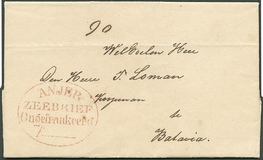 90
Weledelen Heer
Den Heere T. Loman
te
Batavia.
ANJER
ZEEBRIEF
Ongefrankeerd